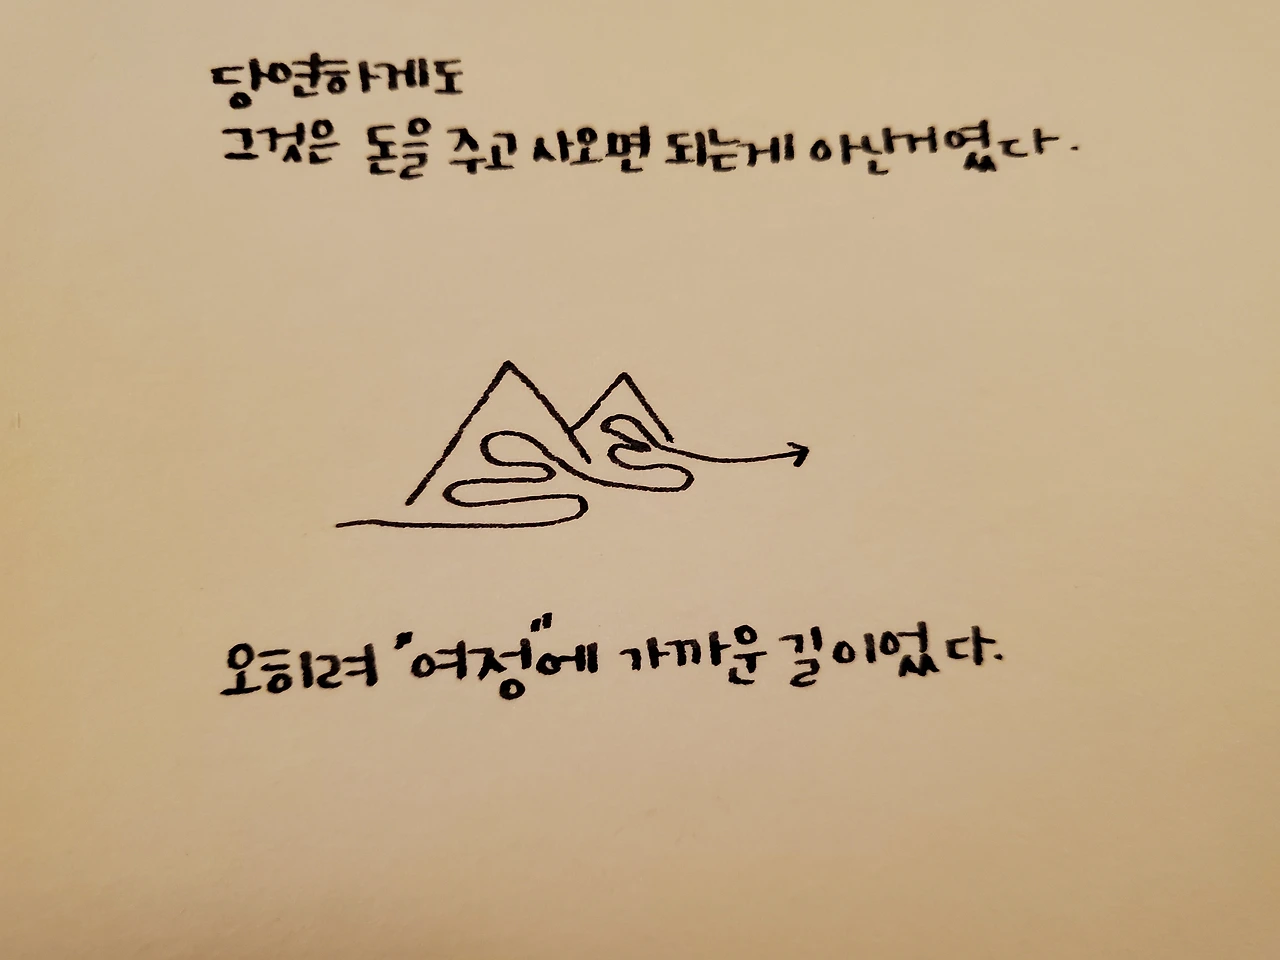 당연하게도
그것은 돈을 주고 사오면 되는게 아산거였다.
오히려 "여정"에 가까운 길이었다.